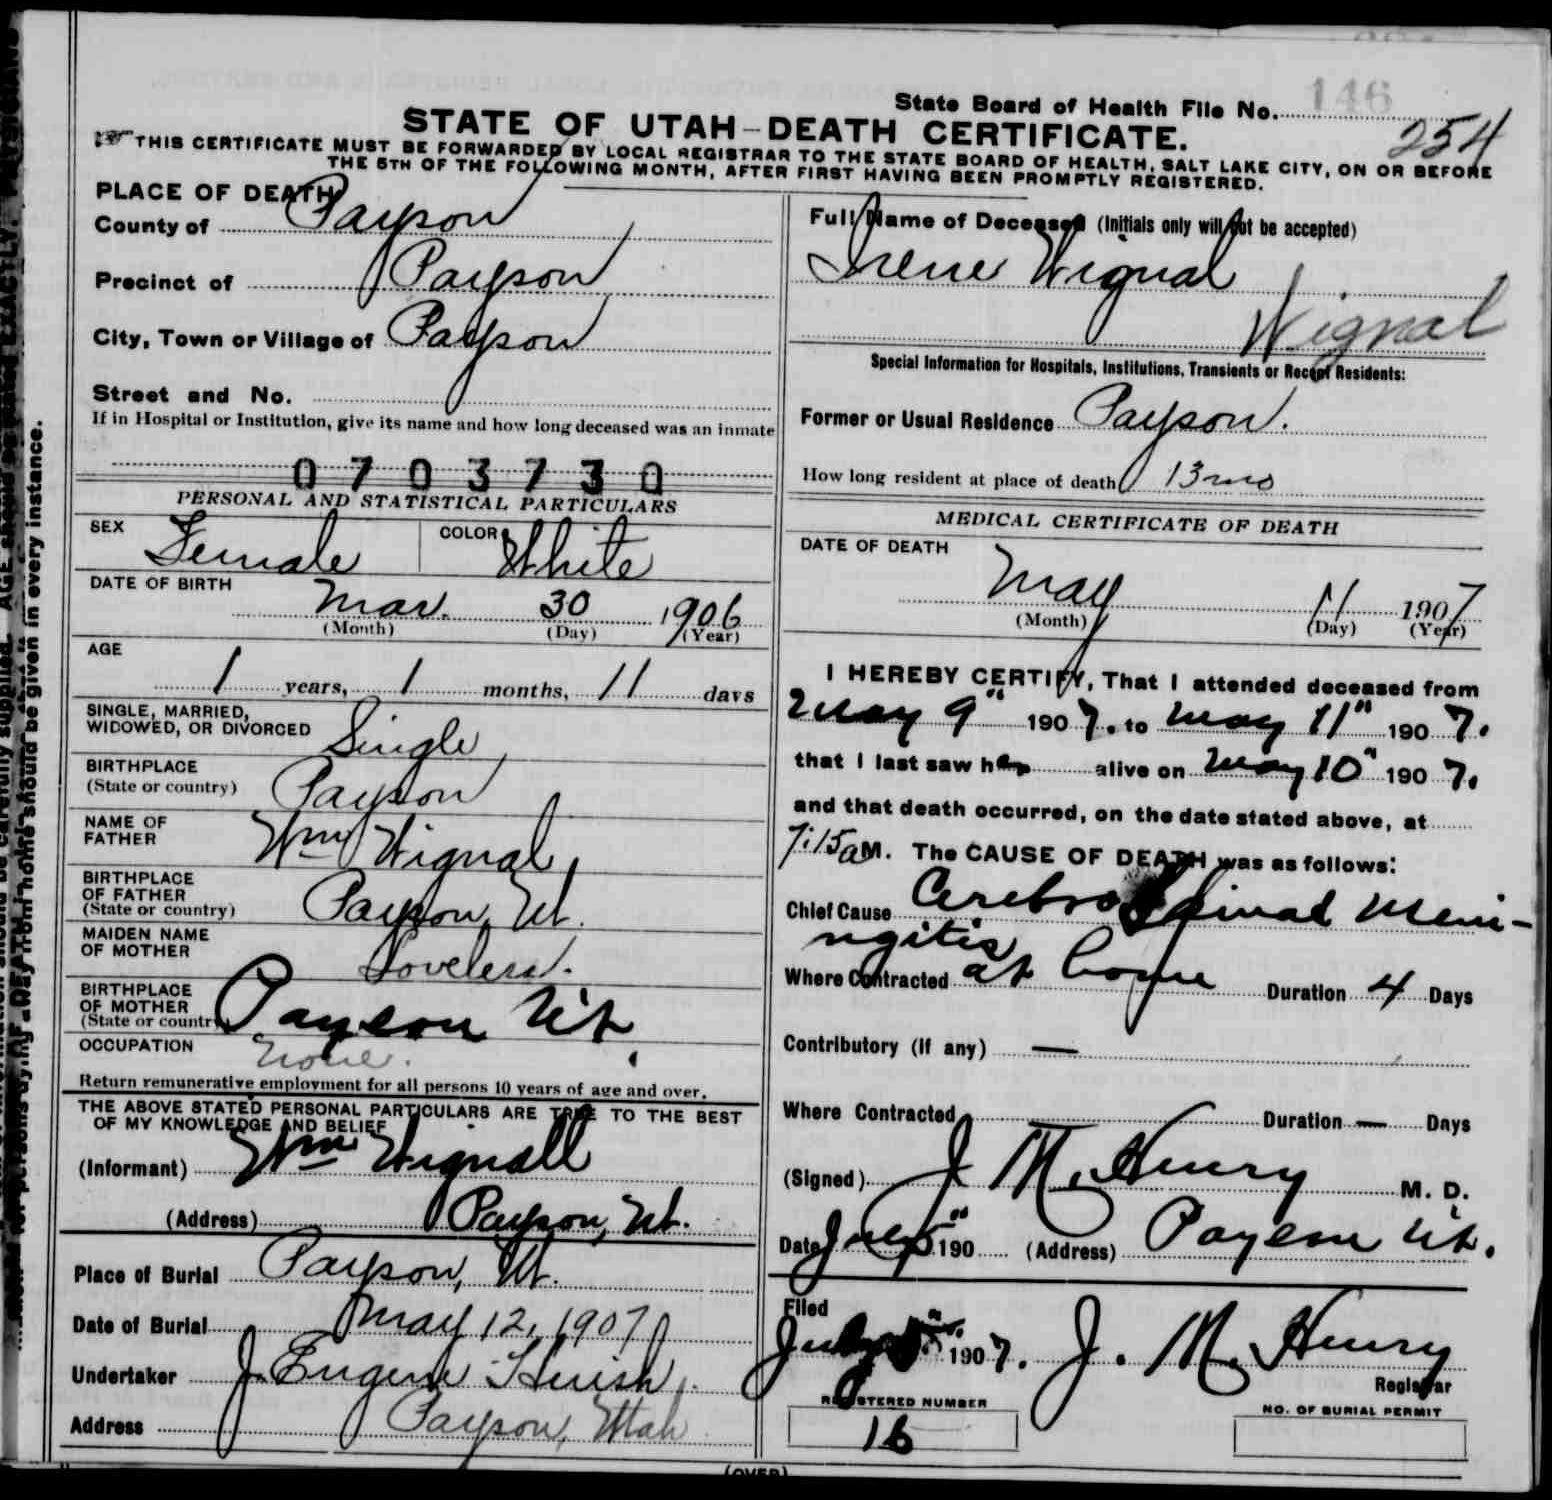 146
State Board of Health File No.
254
STATE OF UTAH-DEATH CERTIFICATE.
THIS CERTIFICATE MUST BE FORWARDED BY LOCAL REGISTRAR TO THE STATE BOARD OF HEALTH, SALT LAKE CITY, ON OR BEFORE
THE 5TH OF THE FOLLOWING MONTH, AFTER FIRST HAVING BEEN PROMPTLY REGISTERED.
PLACE OF DEATH
County of Payson
Precinct of Payson
City, Town or Village of Payson
Street and No.
If in Hospital or Institution, give its name and how long deceased was an inmate
0703730
PERSONAL AND STATISTICAL PARTICULARS
SEX Female COLOR White
DATE OF BIRTH
Mar. 30 1906
(Month) (Day) (Year)
AGE
1 years, 1 months, 11 days
SINGLE, MARRIED,
WIDOWED, OR DIVORCED Single
BIRTHPLACE
(State or country) Payson
NAME OF
FATHER Wm Wignal
BIRTHPLACE
OF FATHER
(State or country) Payson, Ut.
MAIDEN NAME
OF MOTHER Loveless.
BIRTHPLACE
OF MOTHER
(State or country) Payson Ut.
OCCUPATION None.
Return remunerative employment for all persons 10 years of age and over.
THE ABOVE STATED PERSONAL PARTICULARS ARE TRUE TO THE BEST
OF MY KNOWLEDGE AND BELIEF
(Informant) Wm Wignall
(Address) Payson, Ut.
Place of Burial Payson, Ut.
Date of Burial May 12, 1907
Undertaker J. Eugene Huish
Address Payson, Utah
Full Name of Deceased (Initials only will not be accepted)
Irene Wignal
Wignal
Special Information for Hospitals, Institutions, Transients or Recent Residents:
Former or Usual Residence Payson.
How long resident at place of death 13 mo
MEDICAL CERTIFICATE OF DEATH
DATE OF DEATH
May 11 1907
(Month) (Day) (Year)
I HEREBY CERTIFY, That I attended deceased from
May 9" 1907. to May 11" 1907.
that I last saw her alive on May 10" 1907.
and that death occurred, on the date stated above, at
7:15 a M. The CAUSE OF DEATH was as follows:
Chief Cause Cerebro Spinal Meni-
ngitis
Where Contracted at home Duration 4 Days
Contributory (If any) —
Where Contracted Duration — Days
(Signed) J. M. Henry M. D.
Date July 5" 190 (Address) Payson Ut.
Filed
July 5" 1907. J. M. Henry
Registrar
REGISTERED NUMBER
16
NO. OF BURIAL PERMIT
(OVER)
in every instance.